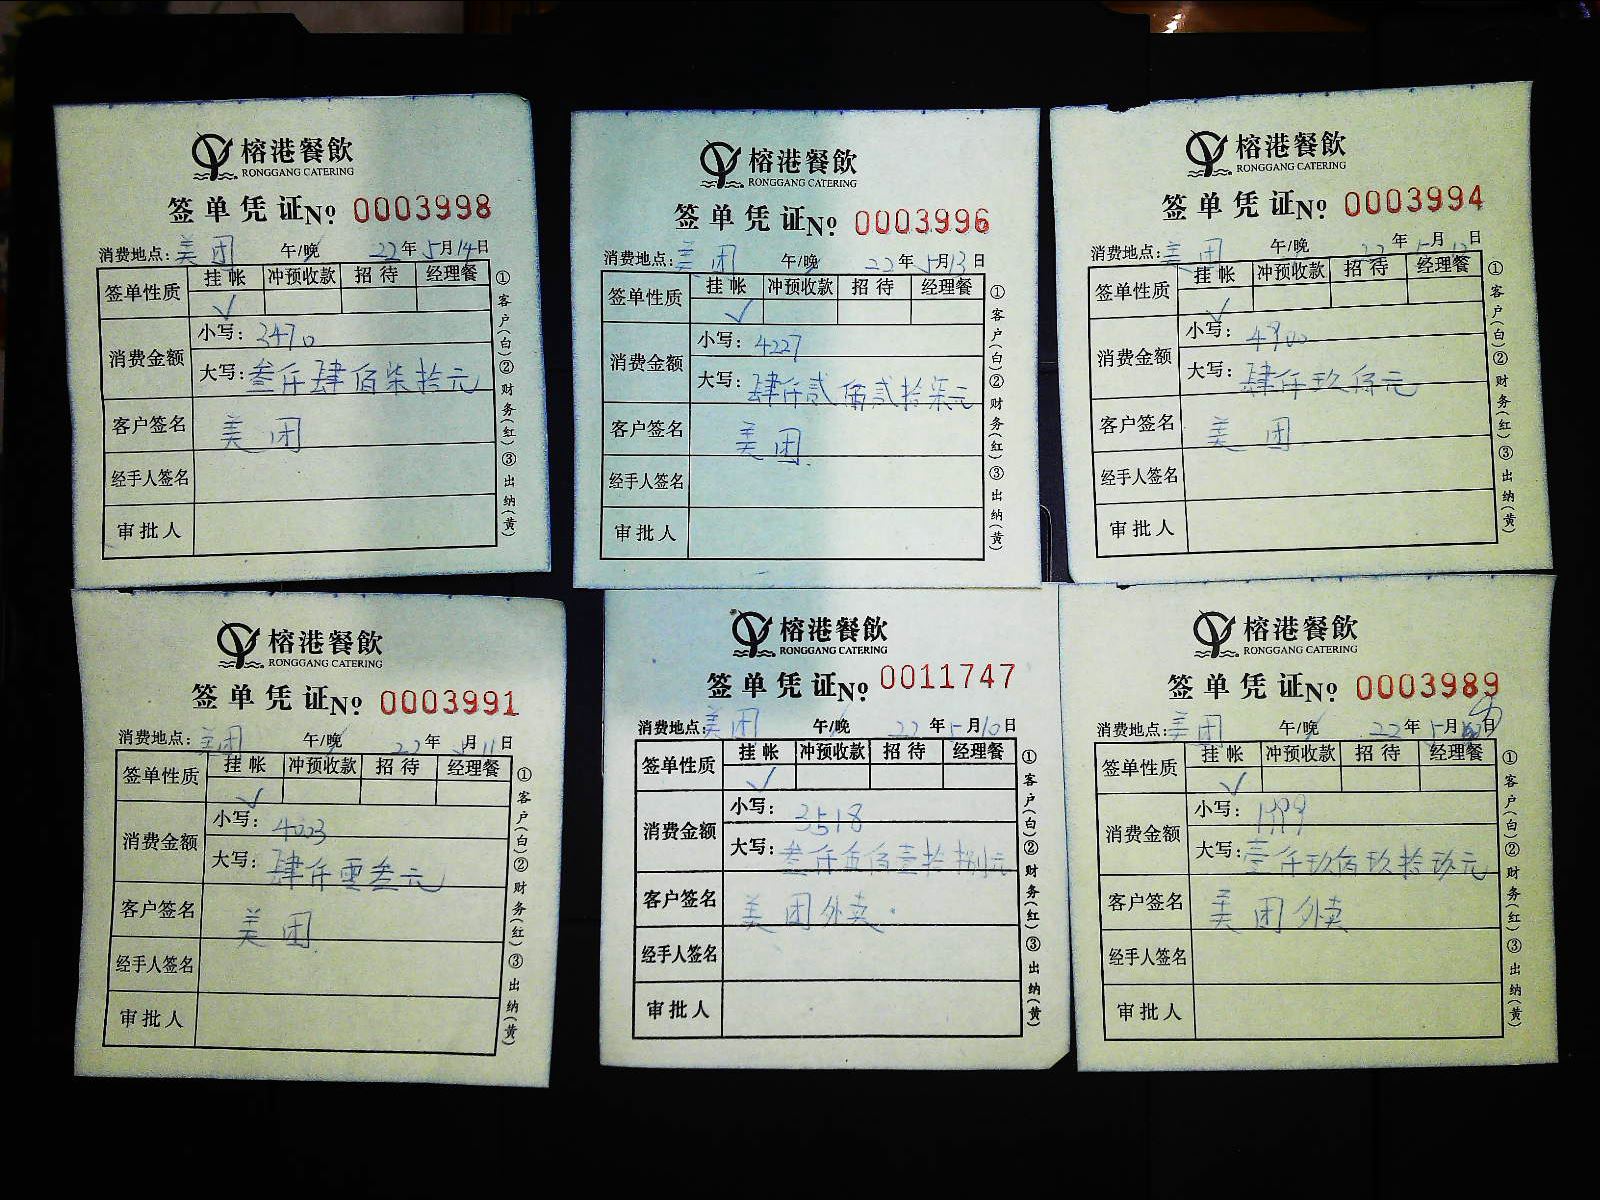 榕港餐飲
RONGGANG CATERING
签单凭证№ 0003998
消费地点:美团 午/晚 22年5月14日
签单性质 挂帐 冲预收款 招待 经理餐
√
消费金额 小写: 3470
大写: 叁仟肆佰柒拾元
客户签名 美团
经手人签名
审批人
①客户(白)②财务(红)③出纳(黄)
榕港餐飲
RONGGANG CATERING
签单凭证№ 0003996
消费地点:美团 午/晚 22年5月13日
签单性质 挂帐 冲预收款 招待 经理餐
√
消费金额 小写: 4227
大写: 肆仟贰佰贰拾柒元
客户签名 美团
经手人签名
审批人
①客户(白)②财务(红)③出纳(黄)
榕港餐飲
RONGGANG CATERING
签单凭证№ 0003994
消费地点:美团 午/晚 22年5月12日
签单性质 挂帐 冲预收款 招待 经理餐
√
消费金额 小写: 4900
大写: 肆仟玖佰元
客户签名 美团
经手人签名
审批人
①客户(白)②财务(红)③出纳(黄)
榕港餐飲
RONGGANG CATERING
签单凭证№ 0003991
消费地点:美团 午/晚 22年5月11日
签单性质 挂帐 冲预收款 招待 经理餐
√
消费金额 小写: 4003
大写: 肆仟零叁元
客户签名 美团
经手人签名
审批人
①客户(白)②财务(红)③出纳(黄)
榕港餐飲
RONGGANG CATERING
签单凭证№ 0011747
消费地点:美团 午/晚 22年5月10日
签单性质 挂帐 冲预收款 招待 经理餐
√
消费金额 小写: 3518
大写: 叁仟伍佰壹拾捌元
客户签名 美团外卖
经手人签名
审批人
①客户(白)②财务(红)③出纳(黄)
榕港餐飲
RONGGANG CATERING
签单凭证№ 0003989
消费地点:美团 午/晚 22年5月 日
签单性质 挂帐 冲预收款 招待 经理餐
√
消费金额 小写: 1999
大写: 壹仟玖佰玖拾玖元
客户签名 美团外卖
经手人签名
审批人
①客户(白)②财务(红)③出纳(黄)